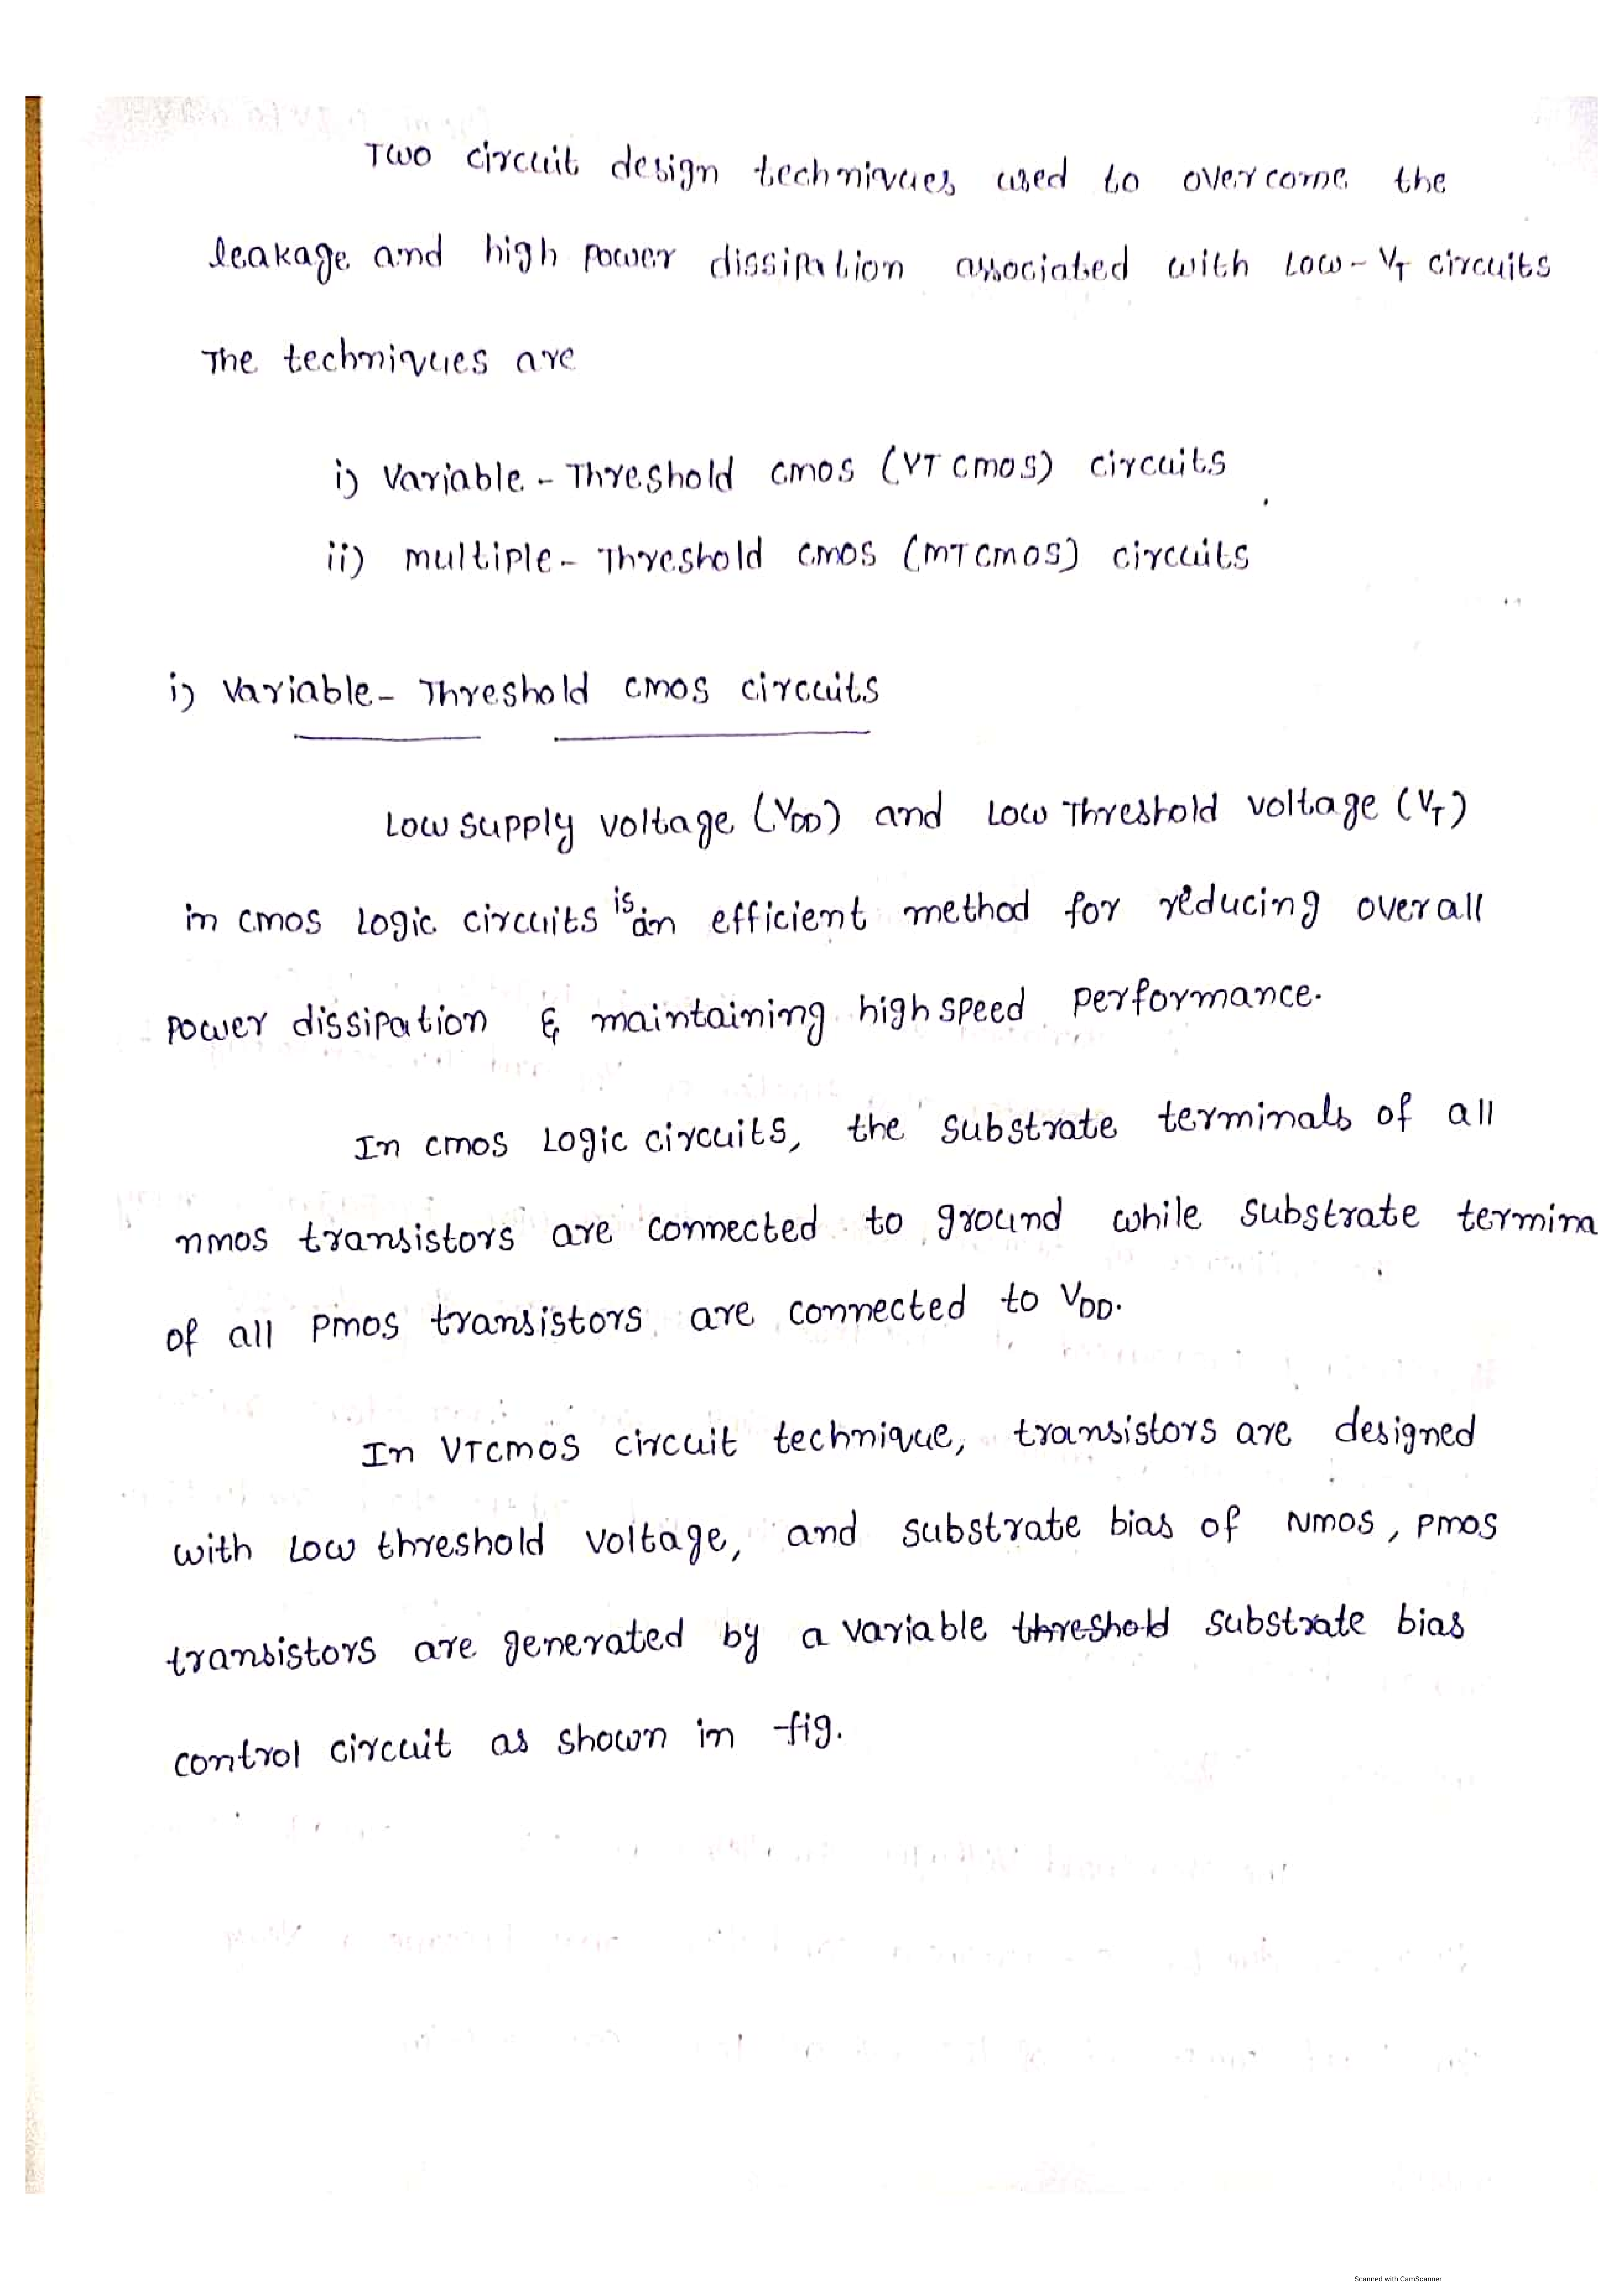 Two circuit design techniques used to overcome the
leakage and high power dissipation associated with Low-VT circuits
The techniques are
i) Variable-Threshold CMOS (VTCMOS) circuits
ii) multiple-Threshold CMOS (MTCMOS) circuits
i) Variable-Threshold CMOS circuits
Low supply voltage (VDD) and Low Threshold voltage (VT)
in CMOS Logic circuits is an efficient method for reducing overall
power dissipation & maintaining high speed performance.
In CMOS Logic circuits, the substrate terminals of all
nmos transistors are connected to ground while substrate termina
of all PMOS transistors are connected to VDD.
In VTCMOS circuit technique, transistors are designed
with Low threshold voltage, and substrate bias of NMOS, PMOS
transistors are generated by a variable threshold substrate bias
control circuit as shown in fig.
Scanned with CamScanner